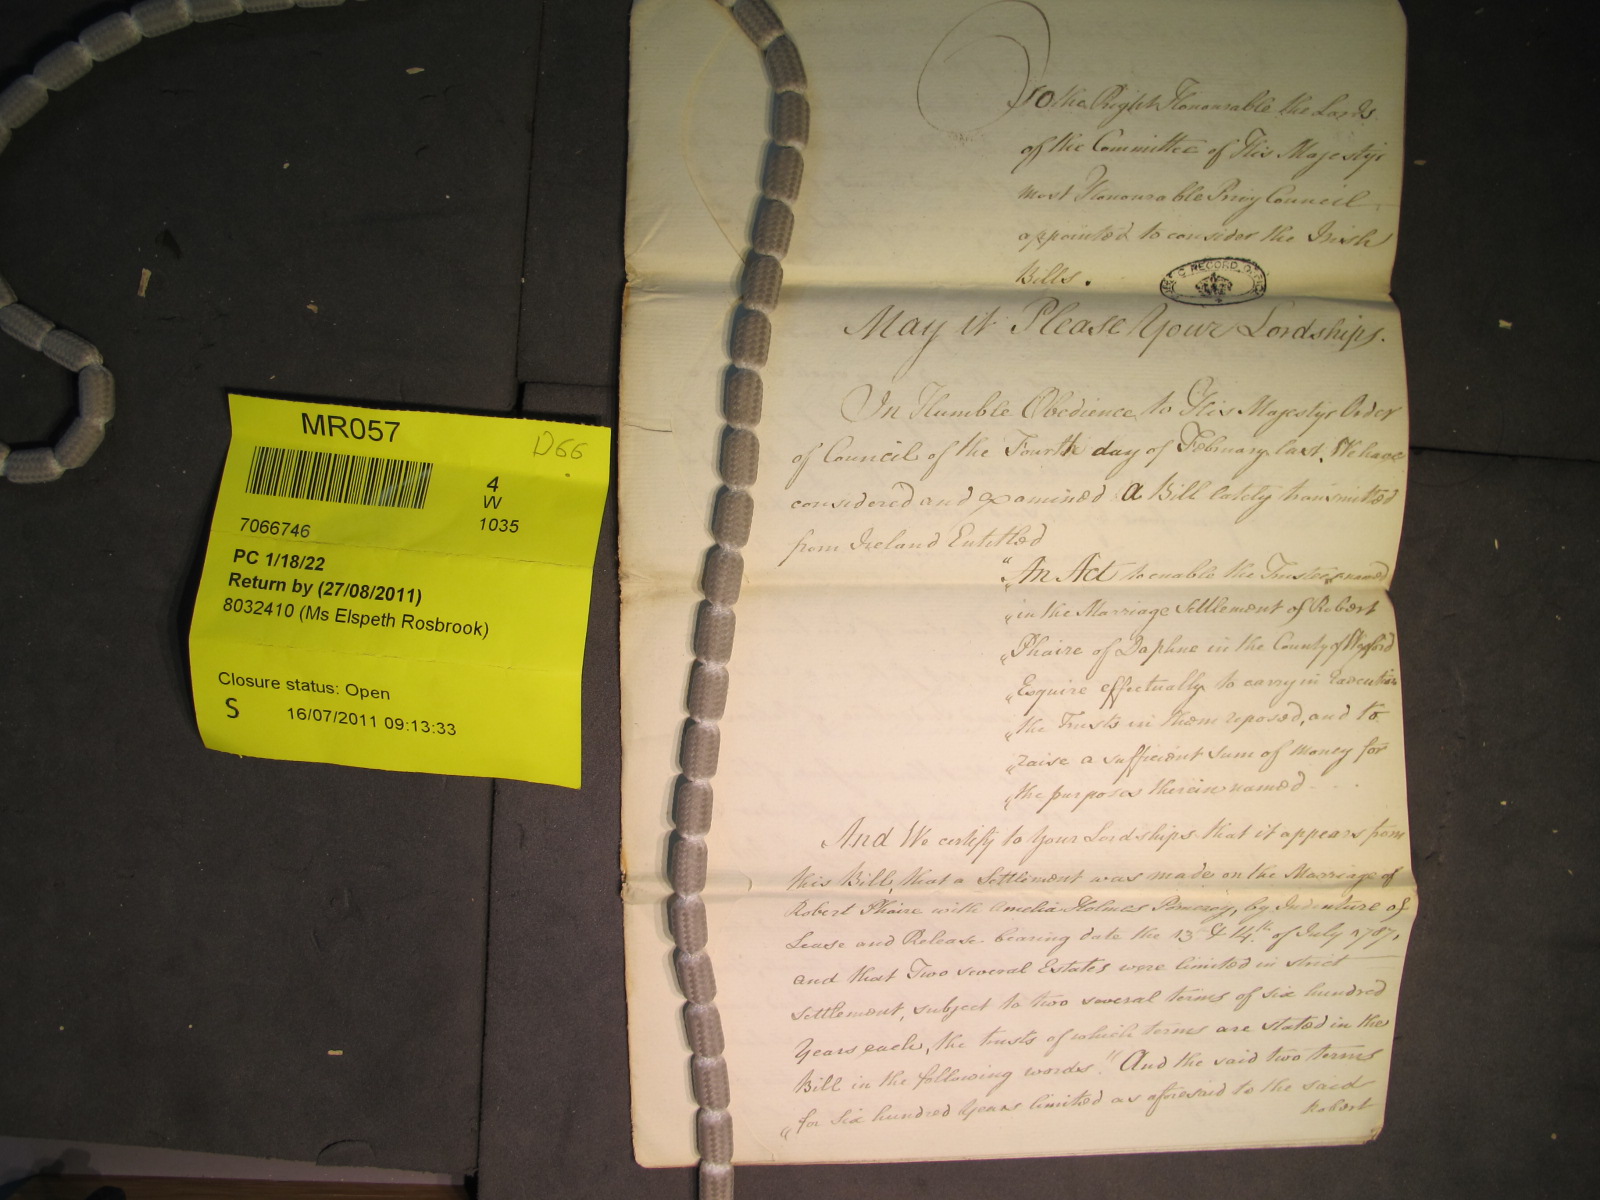 MR057
D66
4
W
1035
7066746
PC 1/18/22
Return by (27/08/2011)
8032410 (Ms Elspeth Rosbrook)
Closure status: Open
S 16/07/2011 09:13:33
To the Right Honourable the Lords
of the Committee of His Majestys
most Honourable Privy Council
appointed to consider the Irish
Bills.
PUBLIC RECORD OFFICE
May it Please Your Lordships.
In Humble Obedience to His Majestys Order
of Council of the Fourth day of February last, We have
considered and examined a Bill lately transmitted
from Ireland Entitled
"An Act to enable the Trustees named
"in the Marriage Settlement of Robert
"Phaire of Daphne in the County of Wexford
"Esquire effectually to carry in Execution
"the Trusts in them reposed, and to
"raise a sufficient sum of money for
"the purposes therein named
And We certify to Your Lordships that it appears from
this Bill, that a Settlement was made on the Marriage of
Robert Phaire with Amelia Holmes Pomeroy, by Indenture of
Lease and Release bearing date the 13 & 14th of July 1787,
and that Two several Estates were limited in strict
settlement, subject to two several terms of six hundred
Years each, the trusts of which terms are stated in the
Bill in the following words. "And the said two terms
"for six hundred Years limited as aforesaid to the said
Robert